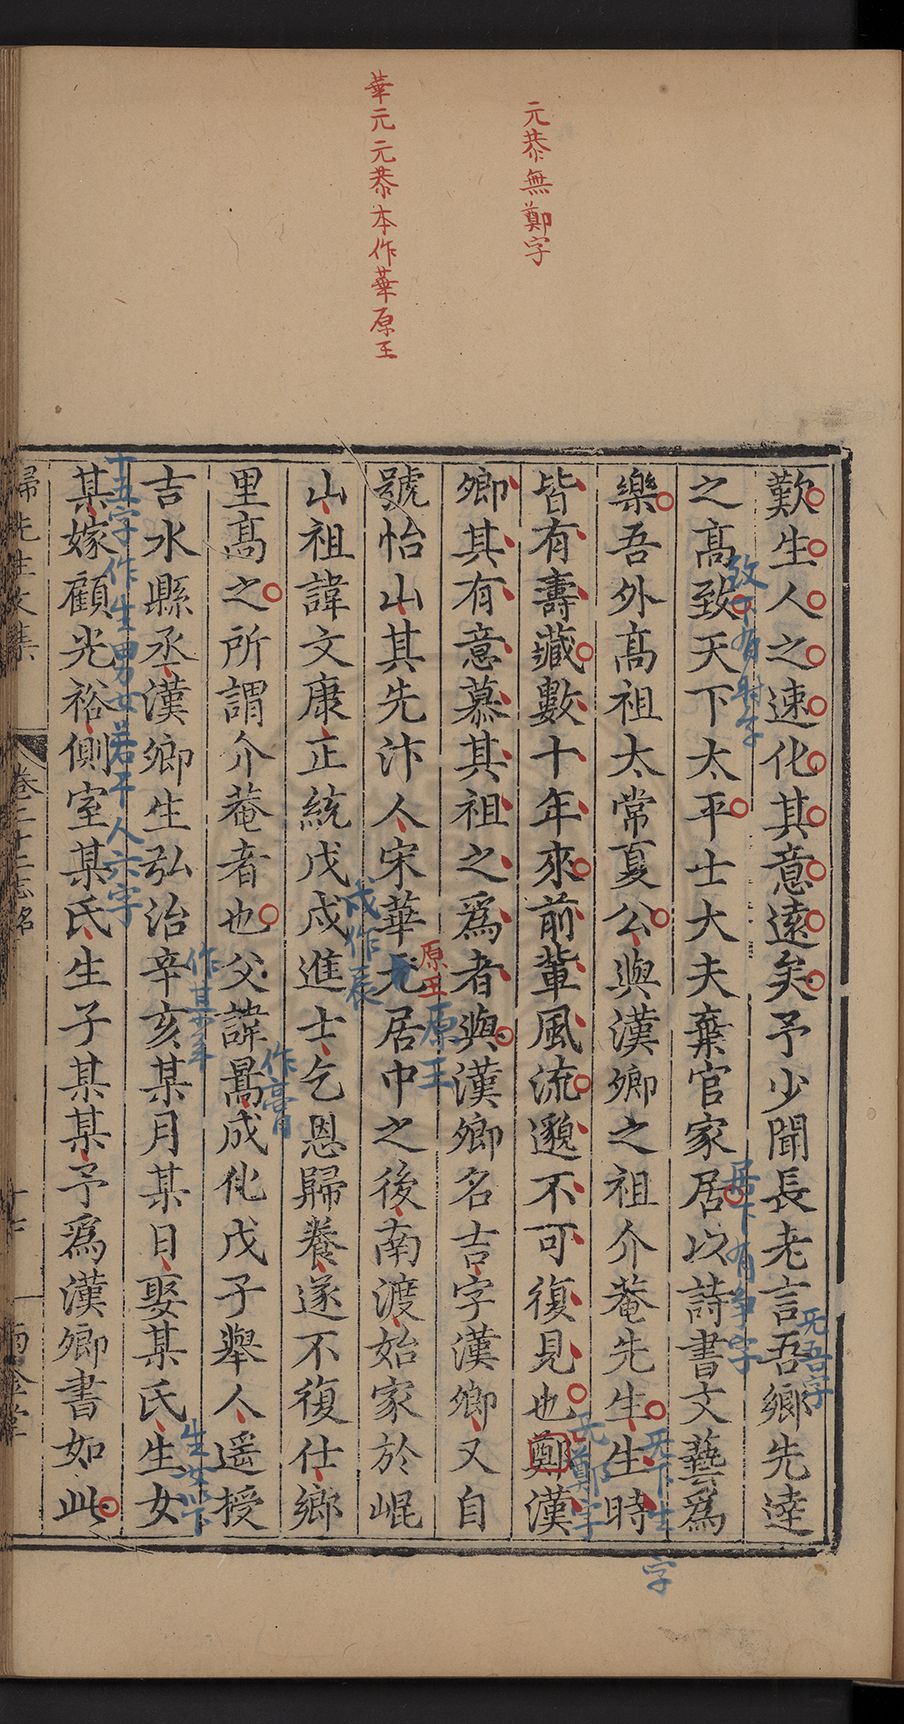 元恭無鄭字
華元元恭本作華原王
歎生人之速化其意遠矣予少聞長老言吾鄉先達
之高致天下太平士大夫棄官家居以詩書文藝為
樂吾外高祖太常夏公與漢卿之祖介菴先生生時
皆有壽藏數十年來前輩風流邈不可復見也鄭漢
卿其有意慕其祖之為者與漢卿名吉字漢卿又自
號怡山其先汴人宋華元居中之後南渡始家於崐
山祖諱文康正統戊戌進士乞恩歸養遂不復仕鄉
里高之所謂介菴者也父諱暠成化戊子舉人遥授
吉水縣丞漢卿生弘治辛亥某月某日娶某氏生女
某嫁顧光裕側室某氏生子某某予為漢卿書如此
无吾字
致下有時字
居下有爭字
无下生字
无鄭字
原王
原王
戌作辰
作膏
作某年
生女以下
十五字作生男女若干人六字
歸先生文集
卷二十二志銘